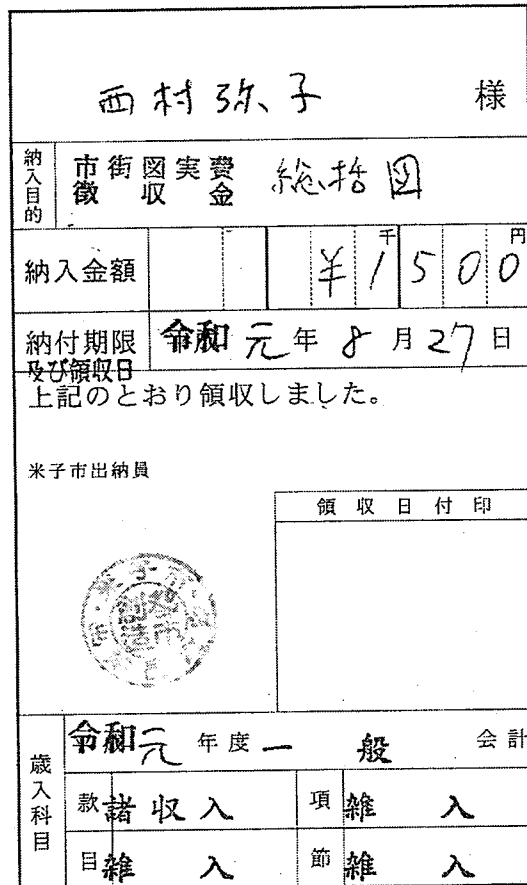 西村弥子 様
納入目的 市街図実費徴収金 総括図
納入金額 千 円
¥1500
納付期限及び領収日 令和元年8月27日
上記のとおり領収しました。
米子市出納員
領収日付印
歳入科目 令和元年度 一般会計
款 諸収入 項 雑入
目 雑入 節 雑入